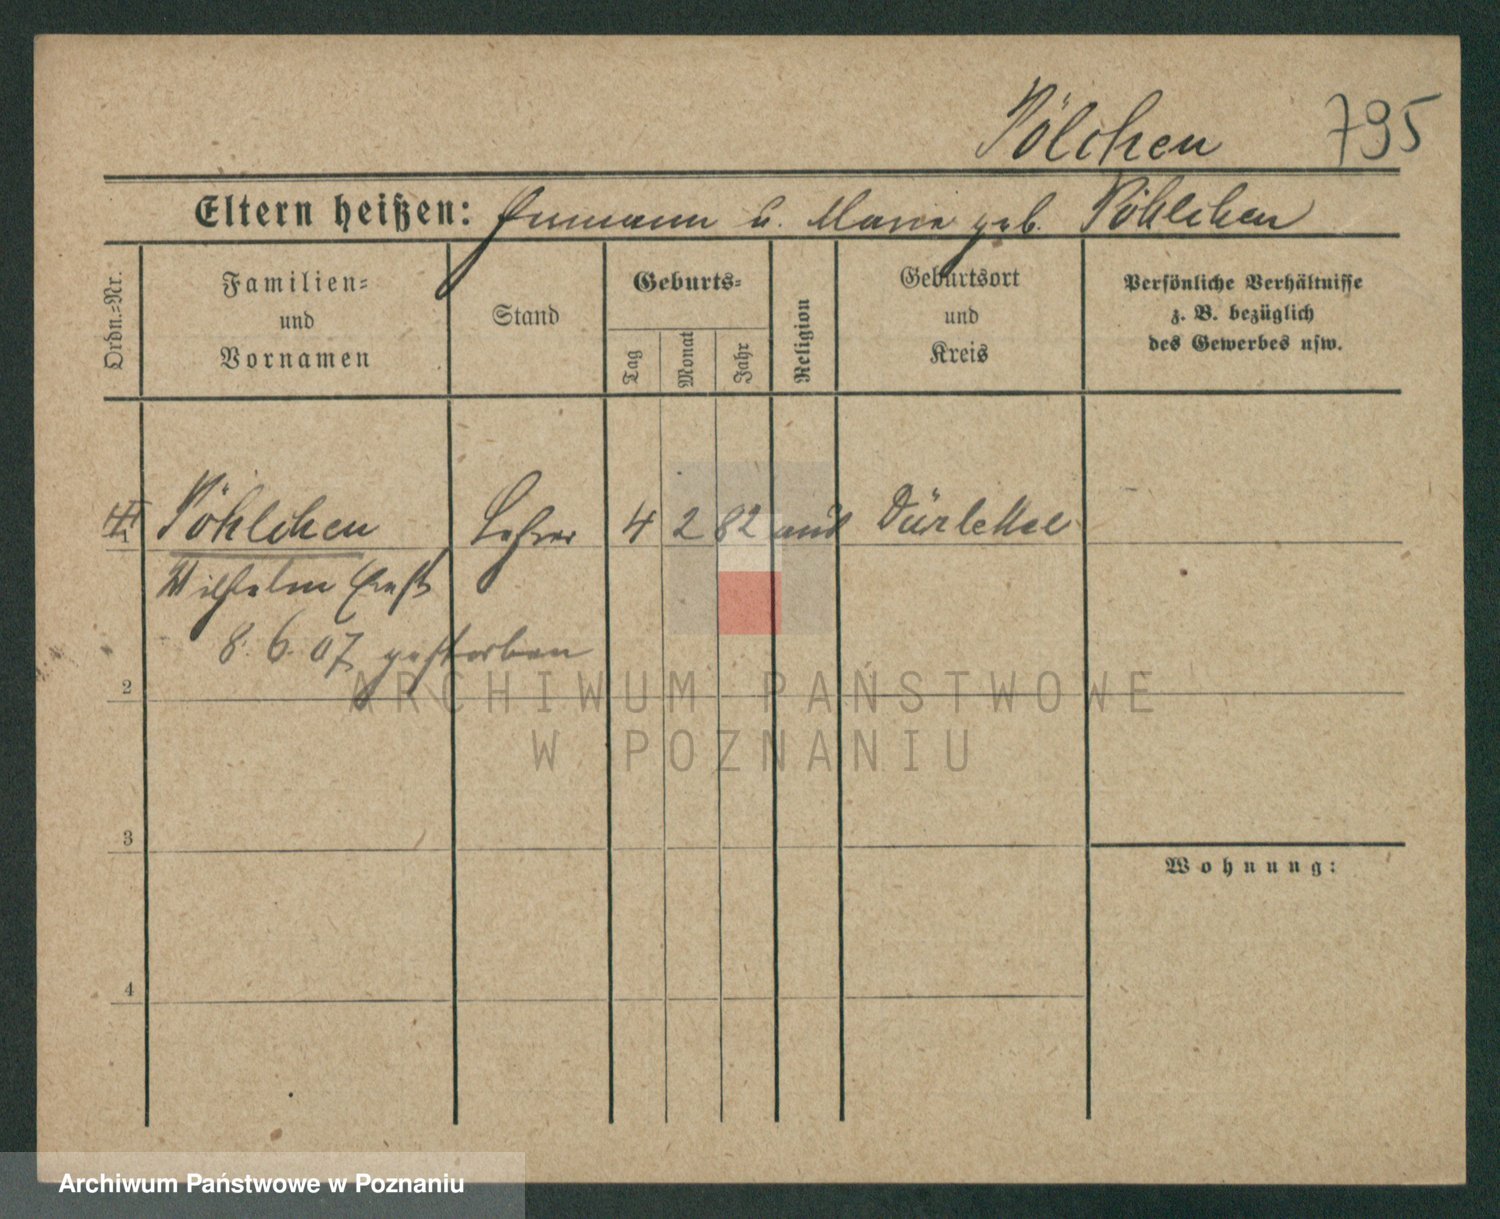 Pölchen 795
Eltern heißen: Hermann u. Marie geb. Pöhlchen
Ordn.-Nr.
Familien-
und
Vornamen
Stand
Geburts-
Tag
Monat
Jahr
Religion
Geburtsort
und
Kreis
Persönliche Verhältnisse
z. B. bezüglich
des Gewerbes usw.
Pöhlchen Lehrer 4 2 82
Wilhelm Ernst
8. 6. 07 gestorben
2
3
4
Wohnung:
ARCHIWUM PAŃSTWOWE
W POZNANIU
Archiwum Państwowe w Poznaniu